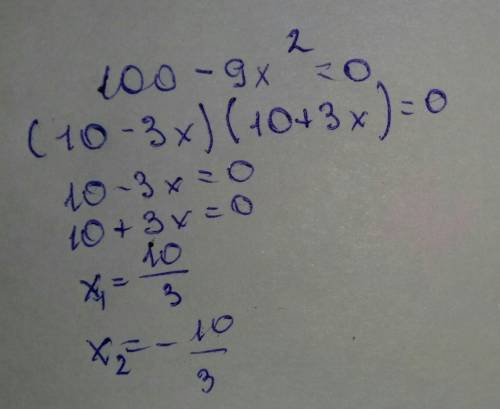 100 - 9x² = 0
(10 - 3x)(10 + 3x) = 0
10 - 3x = 0
10 + 3x = 0
x₁ = 10/3
x₂ = - 10/3